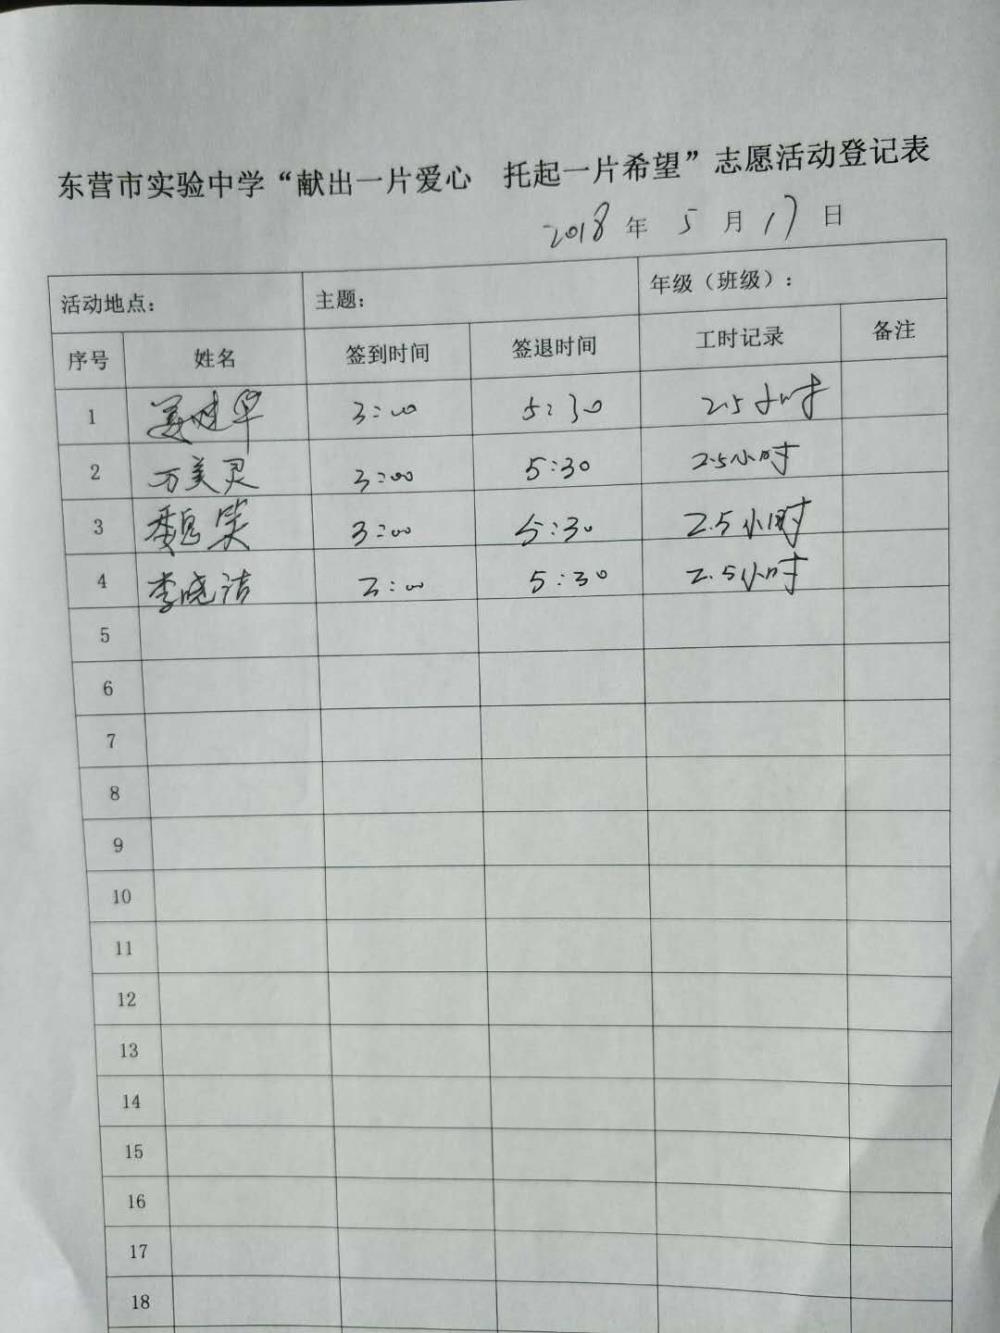 东营市实验中学“献出一片爱心 托起一片希望”志愿活动登记表
2018 年 5 月 17 日
活动地点: 主题: 年级（班级）:
序号 姓名 签到时间 签退时间 工时记录 备注
1 3:00 5:30 2.5小时
2 万美灵 3:00 5:30 2.5小时
3 魏笑 3:00 5:30 2.5小时
4 李晓洁 3:00 5:30 2.5小时
5
6
7
8
9
10
11
12
13
14
15
16
17
18